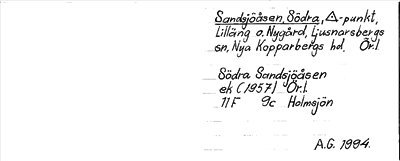 Sandsjöåsen, Södra, Δ-punkt,
Lilläng o. Nygård, Ljusnarsbergs
sn, Nya Kopparbergs hd. Ör.l.
Södra Sandsjöåsen
ek (1957) Ör.l.
11F 9c Holmsjön
A.G. 1994.